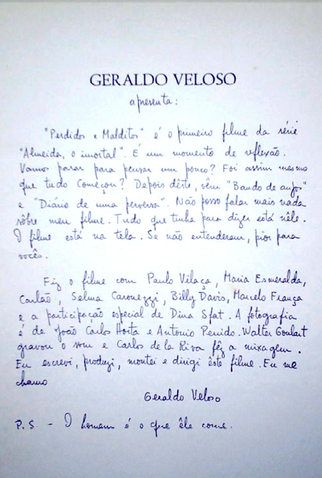 GERALDO VELOSO
apresenta:
"Perdidos e Malditos" é o primeiro filme da série
"Almeida, o imortal". É um momento de reflexão.
Vamos parar para pensar um pouco? Foi assim mesmo
que tudo começou? Depois dêste, vem "Bando de anjos"
e "Diário de uma perversa". Não posso falar mais nada
sôbre meu filme. Tudo que tinha para dizer está nêle.
O filme está na tela. Se não entenderam, pior para
vocês.
Fiz o filme com Paulo Vilaça, Maria Esmeralda,
Carlão, Selma Caronezzi, Billy Davis, Marcelo França
e a participação especial de Dina Sfat. A fotografia
é de João Carlos Horta e Antonio Penido. Walter Goulart
gravou o som e Carlos de la Riva fêz a mixagem.
Eu escrevi, produzi, montei e dirigi êste filme. Eu me
chamo
Geraldo Veloso
P.S. - O homem é o que êle come.